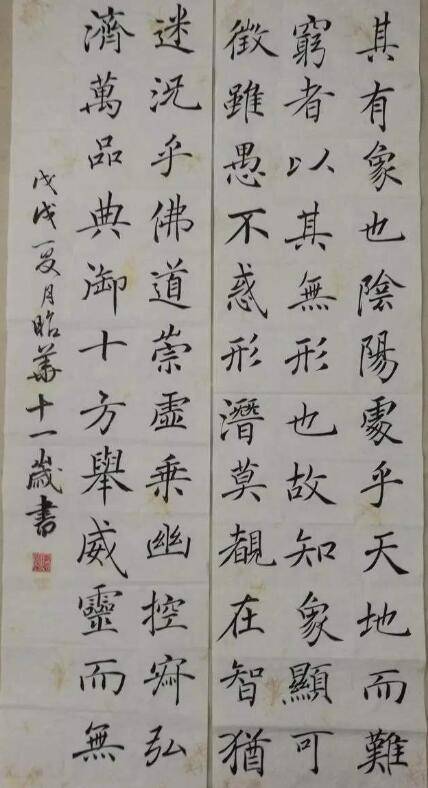 其有象也陰陽處乎天地而難
窮者以其無形也故知象顯可
徵雖愚不惑形潛莫覩在智猶
迷況乎佛道崇虛乗幽控寂弘
濟萬品典御十方舉威靈而無
戊戌夏月昭華十一歲書